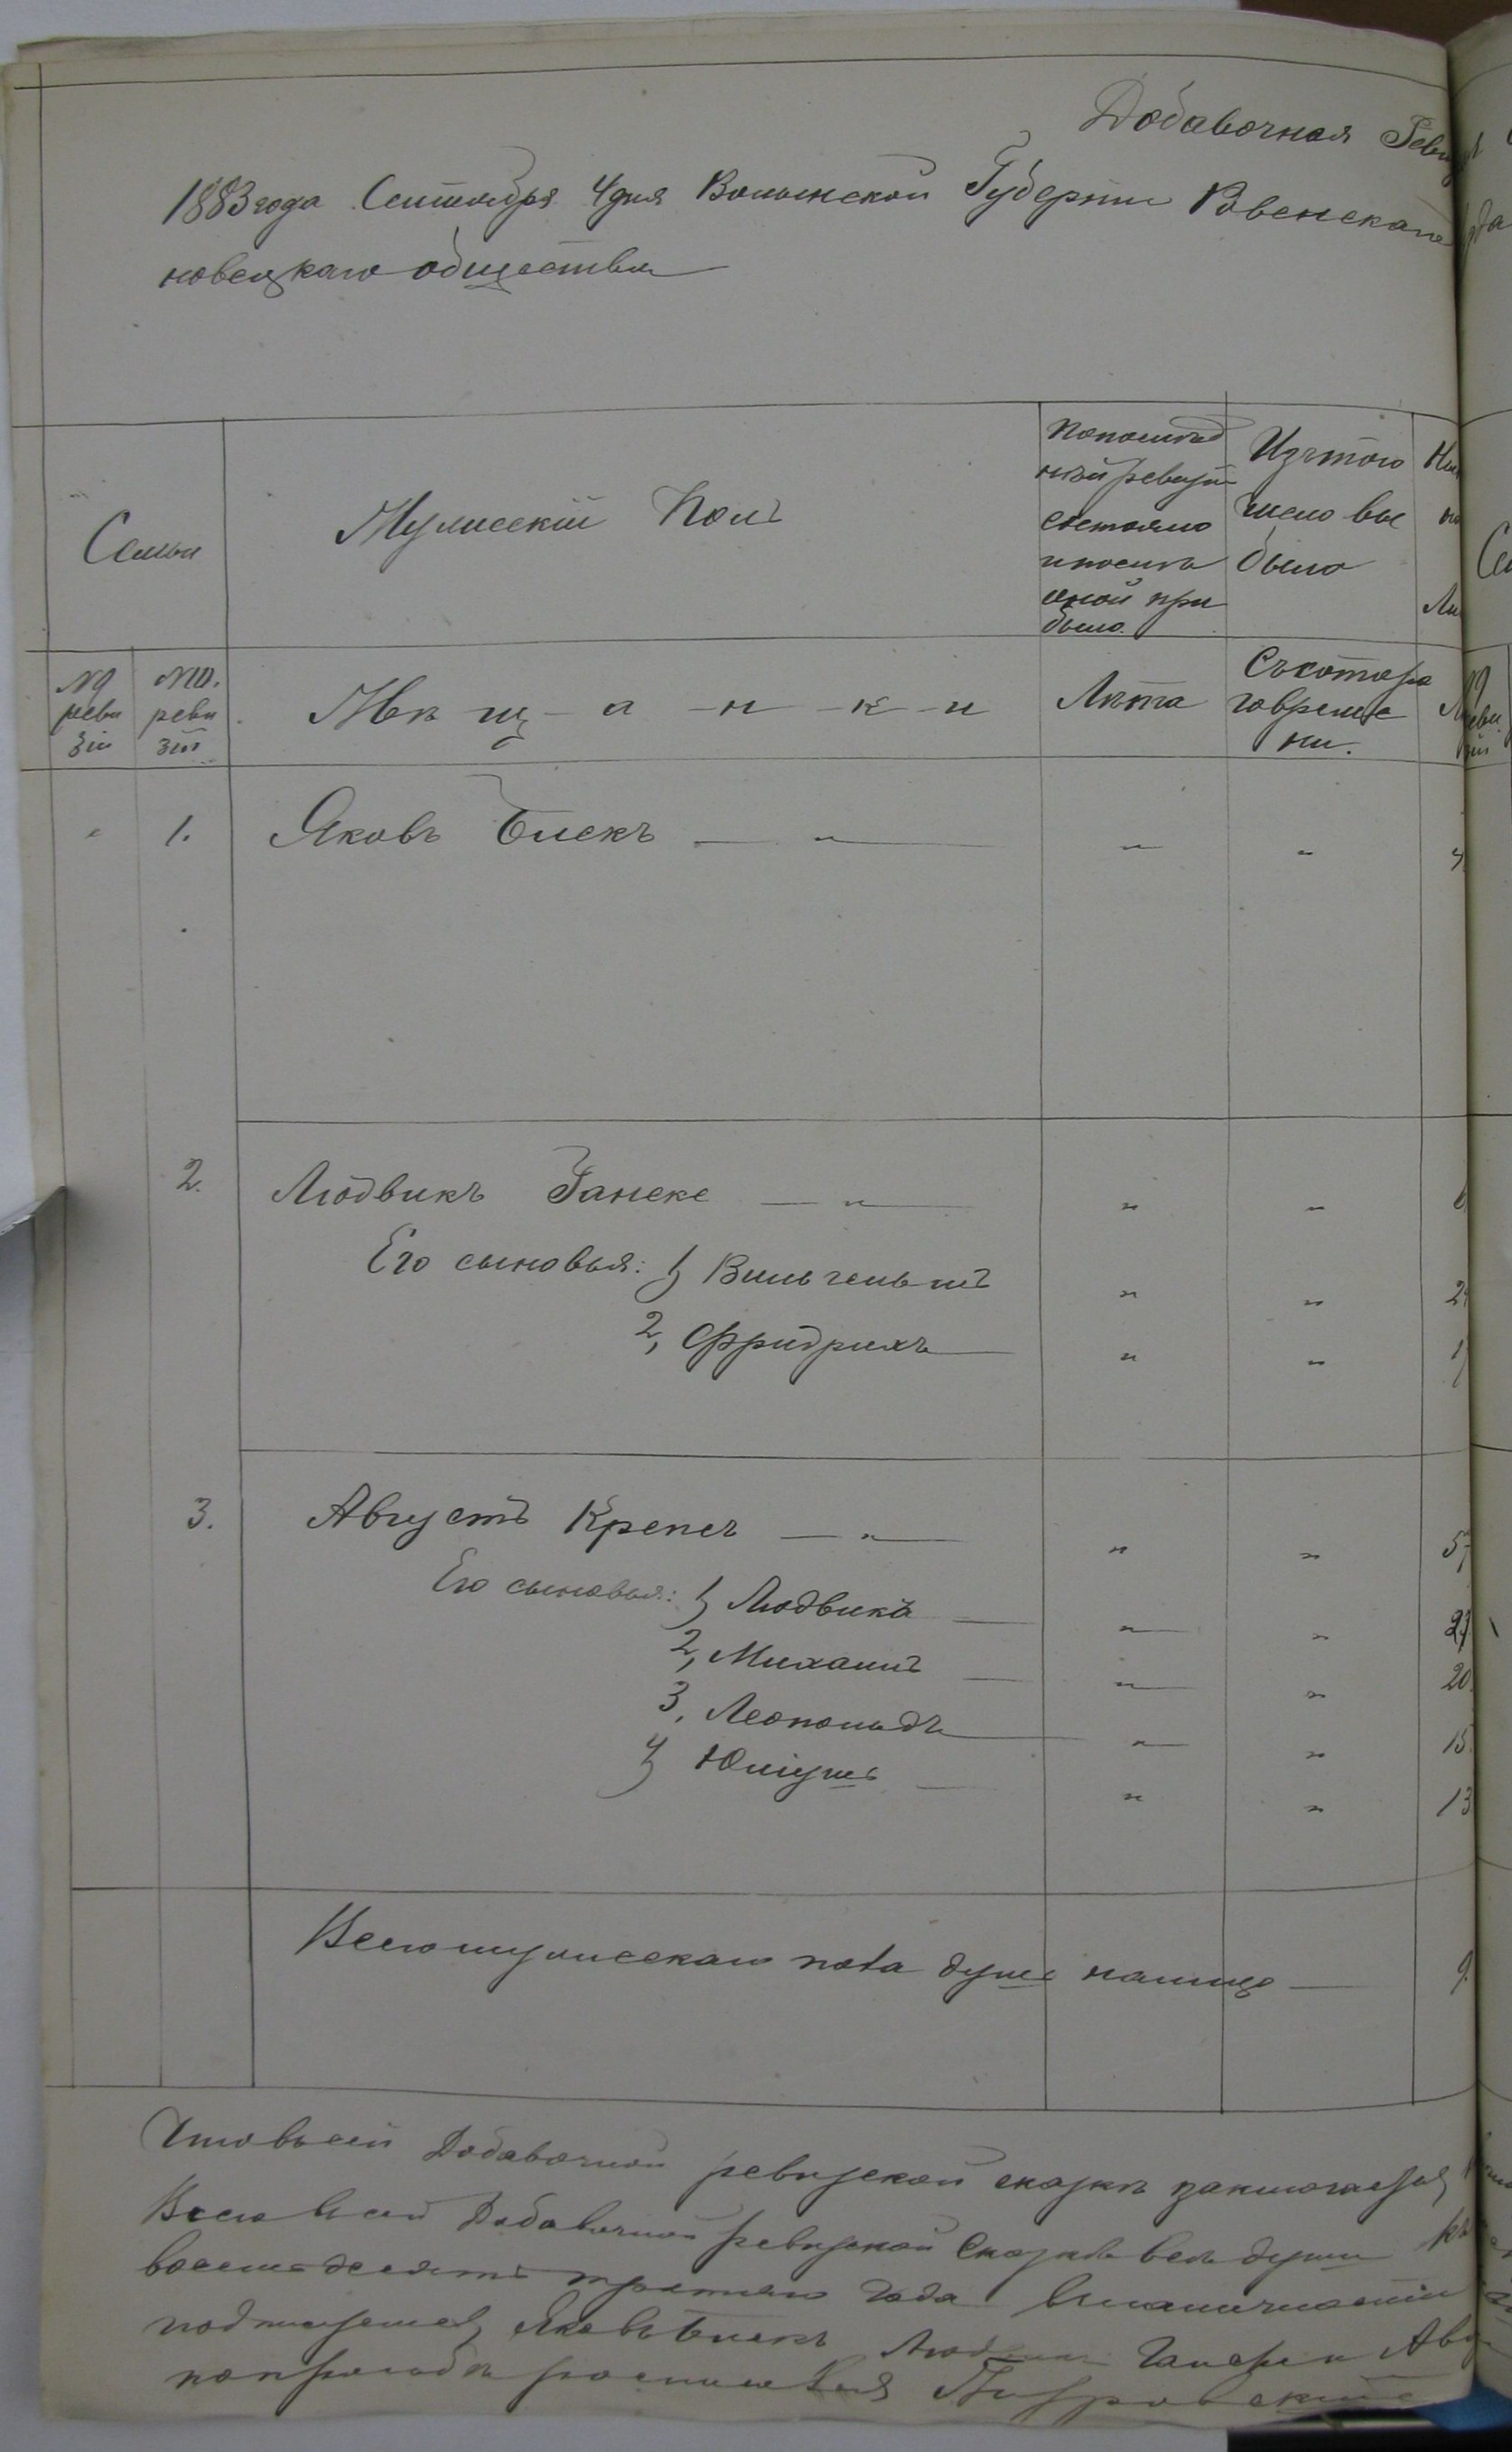 Добавочная Реви
1883 года Сентября 4 дня Волынской Губернии Ровенскаго
новецкаго общества
Семьи
Мужескій Полъ
По послѣд
ней ревизіи
состояло
и послѣ
оной при
было.
Изъ того
число вы
было
№ 9 реви зіи
№ 10. реви зіи
Мѣ щ - а - н - к - и
Лѣта
Съ котора
го време
ни.
1. Яковъ Блекъ — " — " "
2. Людвикъ Ганске — " — " "
Его сыновья: 1, Вильгельмъ " " 2
2, Фридрихъ " " 1
3. Августъ Крепсъ — " — " " 57
Его сыновья: 1, Людвикъ — " " 23
2, Михаилъ — " " 20.
3, Леопольдъ — " " 15.
4, Юліушъ — " " 13
Всего мужескаго пола душъ налицо — 9.
Что въ сей Добавочной ревизской сказкѣ заключается
Всего в сей Добавочной ревизской Сказкѣ всѣ души
восемьдесятъ третьяго года
Яковъ Блекъ Ав
по просьбѣ росписался